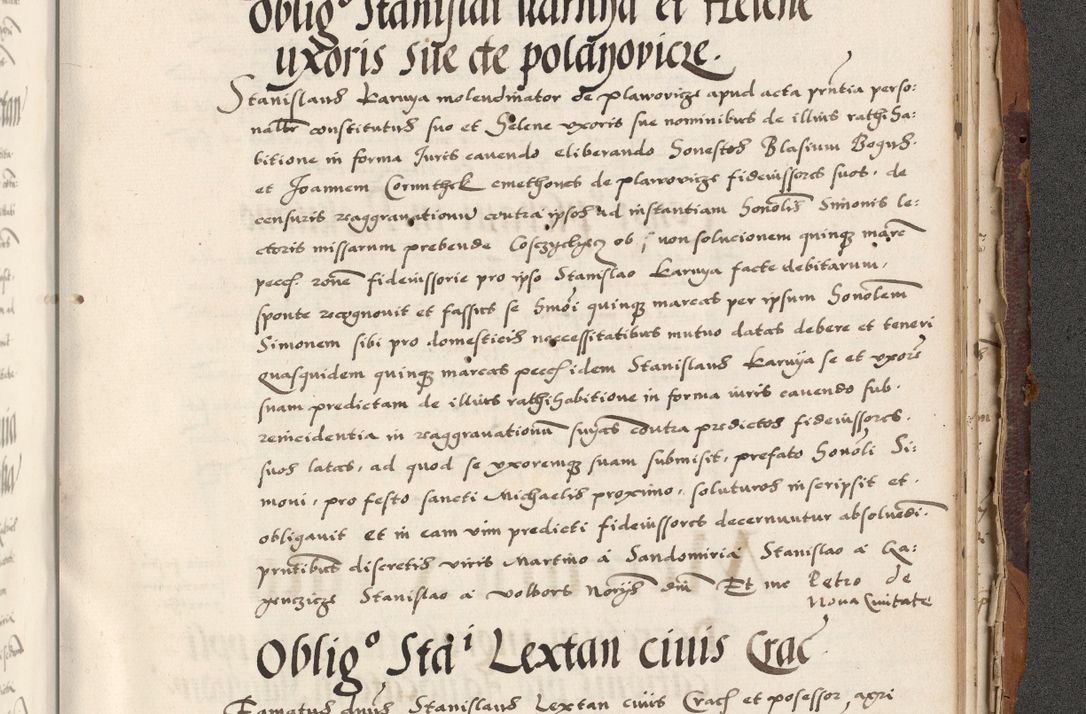 Oblig° Stanislai Karuya et Helene
uxoris sue de polanovicze.
Stanislaus Karuya molendinator de plawovicze apud acta pruntia perso:
nalbr constitutus suo et Helene uxoris sue nominibus de illius rathiha:
bitione in forma Juris cavendo eliberando honestos Blasium Bogus.
et Joannem Cornuthek cmethones de plawovicze fideiussores suos, de
censuris reaggravationum contra ipsos ad instantiam honolis Simonis le:
ctoris missarum prebende ob non solucionem quinqȝ marc
peccf. rone fideiussorie pro ipso Stanislao Karuya facte debitarum,
sponte recognovit et fassus se Smoi quinqȝ marcas per ipsum honolem
Simonem sibi pro domesticis necessitatibus mutuo datas debere et teneri
quasquidem quinqȝ marcas peccf idem Stanislaus Karuya se et uxore
suam predictam de illius rathihabitione in forma iuris cavendo sub.
reincidentia in reaggravationum contra predictos fideiussores.
suos latas, ad quod se uxoremqȝ suam submisit, prefato honoli Si:
moni, pro festo sancti Michaelis proximo, soluturos inscripsit et.
obligavit Et in eam vim predicti fideiussores decernuntur absolvedi.
pruntibus discretis viris Martino a Sandomiria Stanislao a Ga:
Stanislao a Volbors Norys dm Et me Petro de
Nova Civitate
Oblig° Staⁱ Lextan civis Crac.
Famatus dnus Stanislaus Lextan civis Cracf et posessor agri